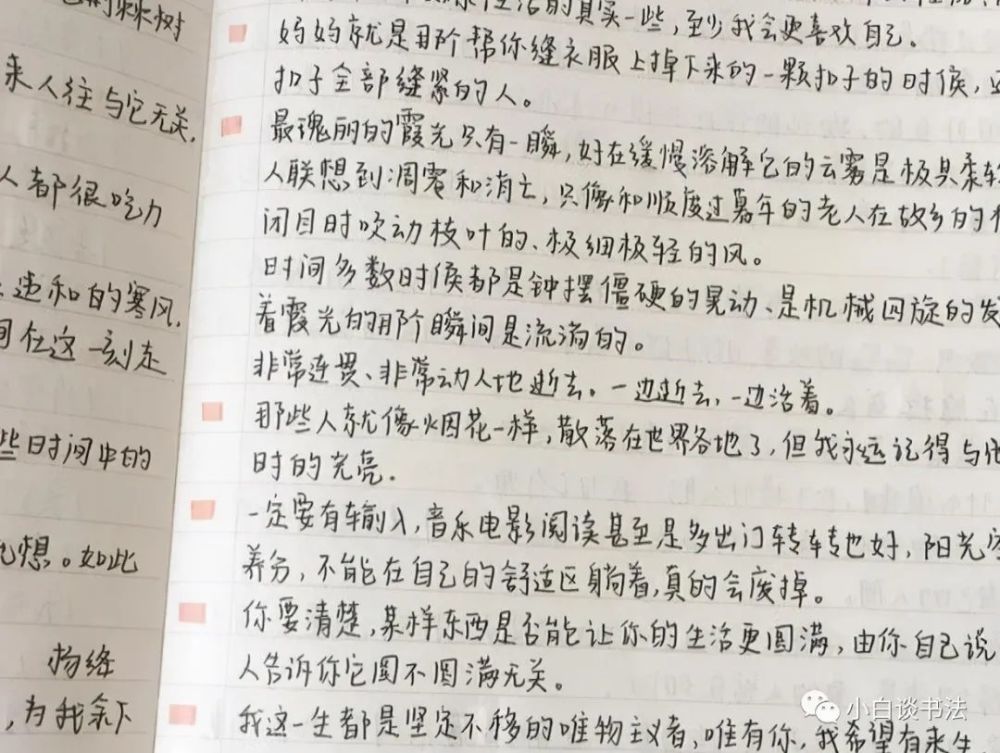 树
来人往与它无关,
人都很吃力
违和的寒风,
间在这一刻走
些时间中的
想。如此
杨绛
,为我余下
生活的真实一些,至少我会更喜欢自己.
妈妈就是那个帮你缝衣服上掉下来的一颗扣子的时候,
扣子全部缝紧的人。
最瑰丽的霞光只有一瞬,好在缓慢溶解它的云雾是极具柔软
人联想到凋零和消亡,只像和顺度过暮年的老人在故乡的
闭目时吹动枝叶的、极细极轻的风。
时间多数时候都是钟摆僵硬的晃动、是机械回旋的发
着霞光的那个瞬间是流淌的。
非常连贯、非常动人地逝去。一边逝去,一边活着。
那些人就像烟花一样,散落在世界各地了,但我永远记得与他
时的光亮.
一定要有输入,音乐电影阅读甚至是多出门转转也好,阳光
养分,不能在自己的舒适区躺着,真的会废掉。
你要清楚,某样东西是否能让你的生活更圆满,由你自己说
人告诉你它圆不圆满无关。
我这一生都是坚定不移的唯物主义者,唯有你,我希望有来生
小白谈书法